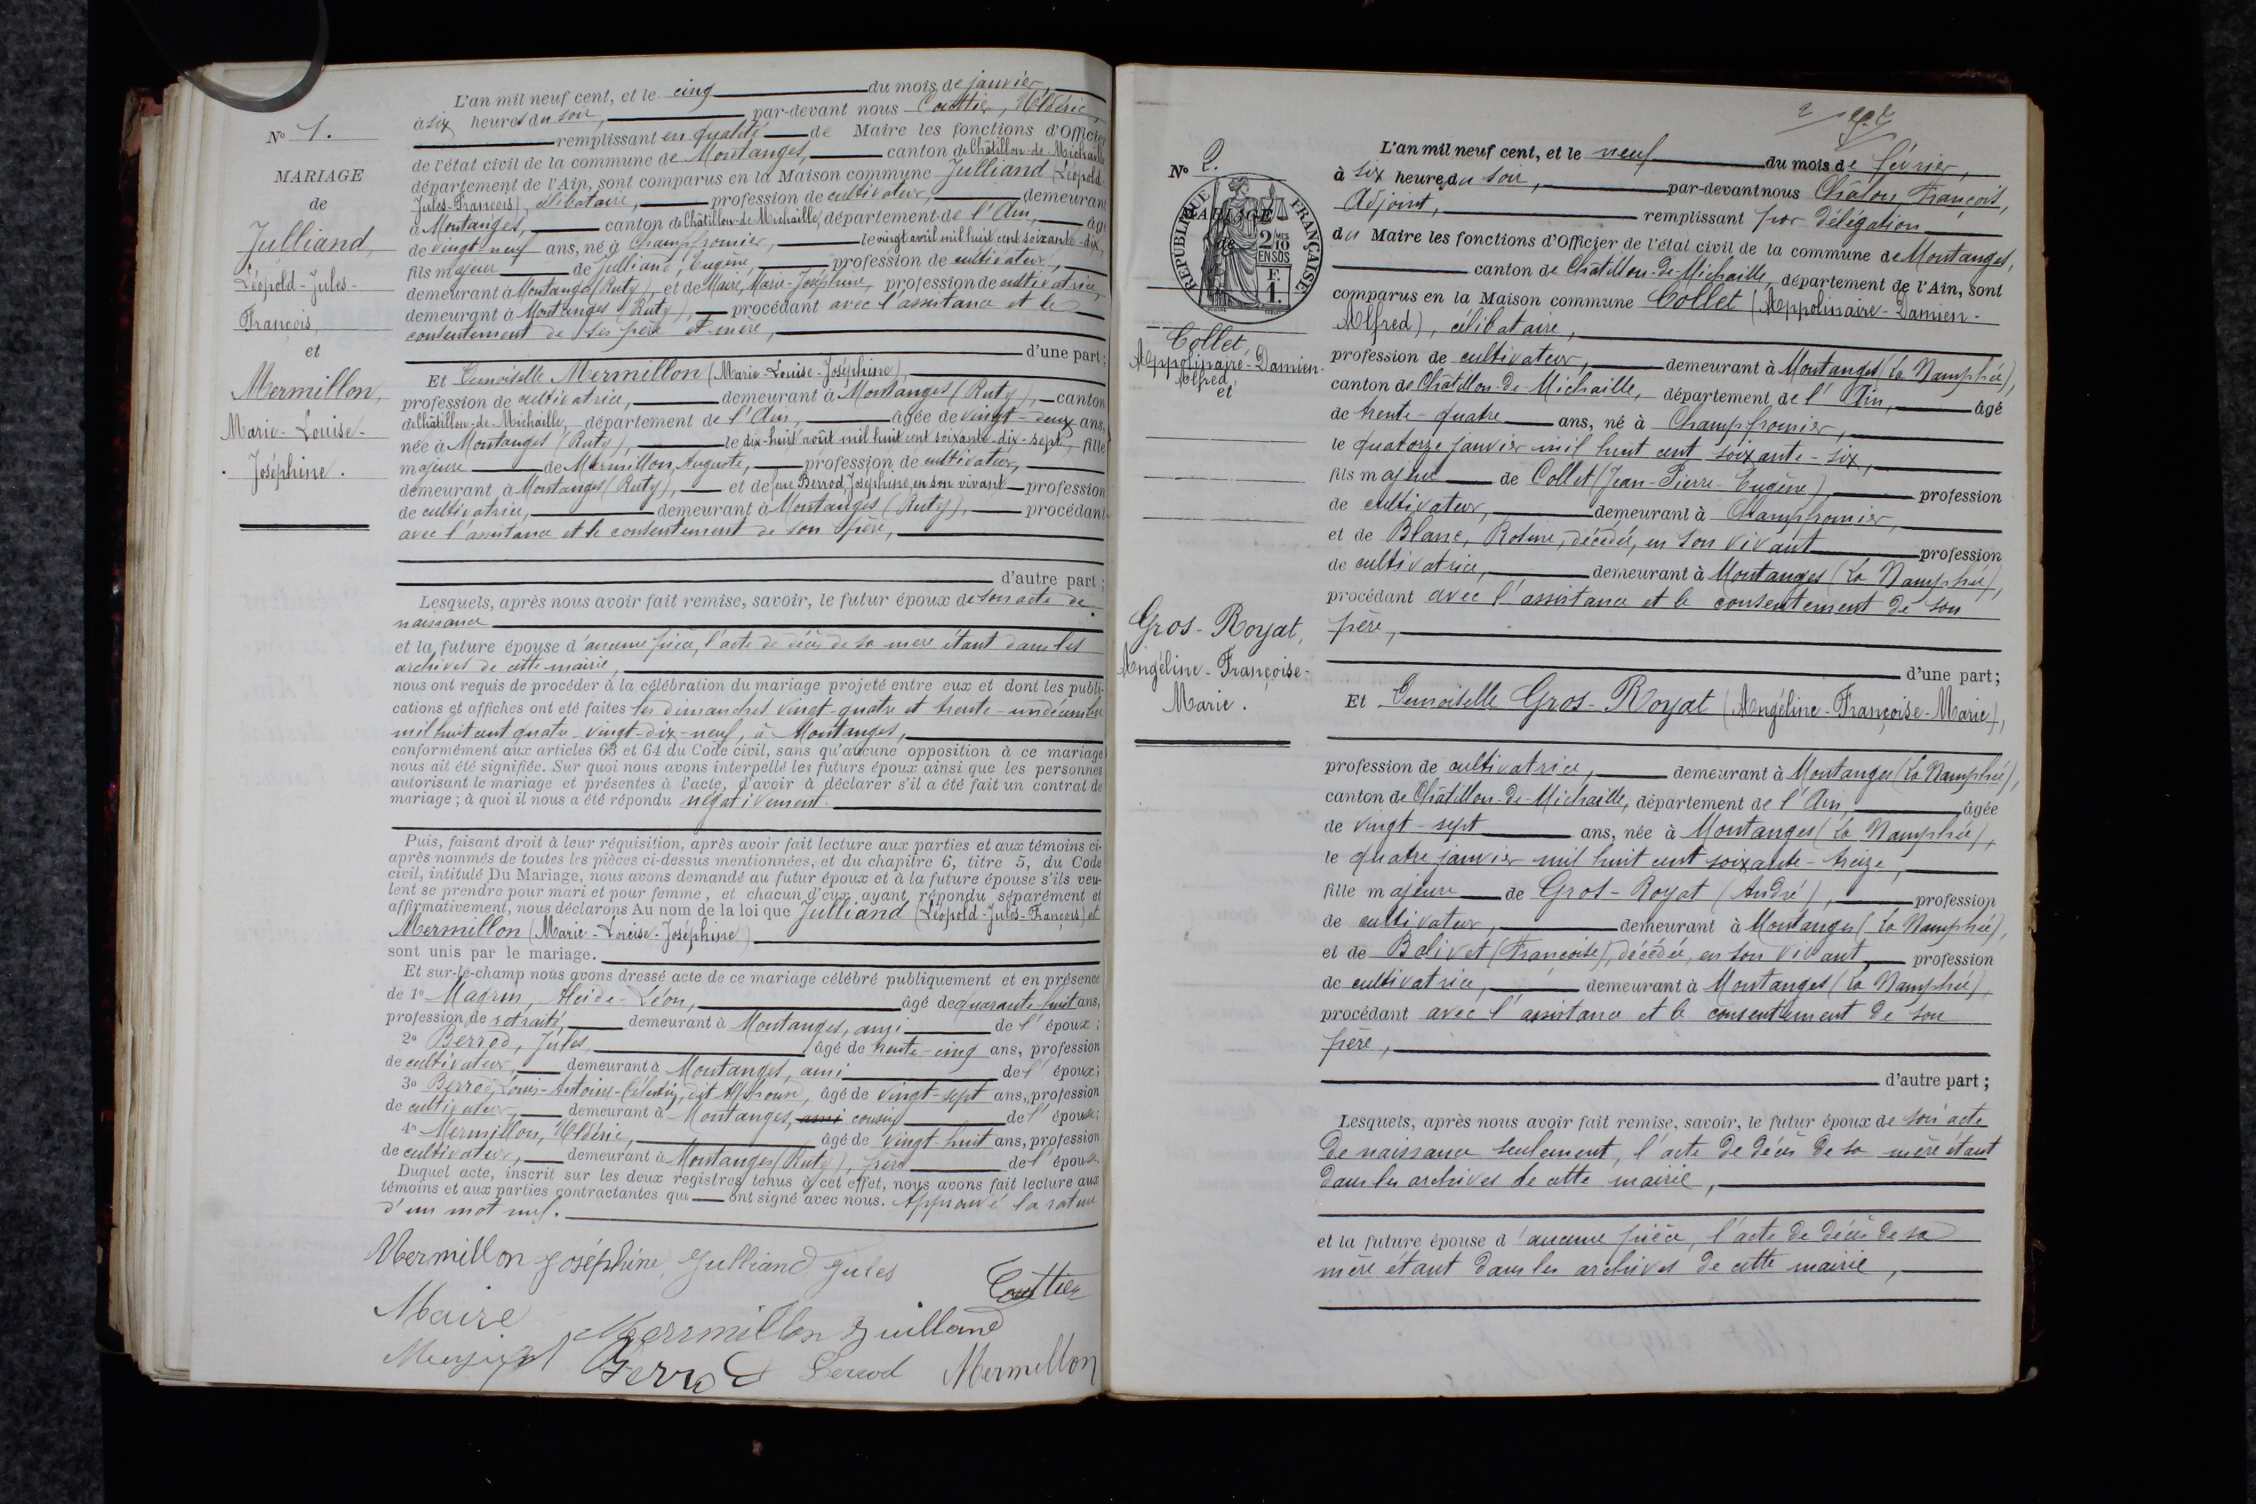 L'an mil neuf cent, et le cinq du mois de janvier,
à six heures du soir, par-devant nous Coutier, Uldéric,
remplissant en qualité de Maire les fonctions d'Officier
de l'état civil de la commune de Montanges, canton de Châtillon-de-Michaille
département de l'Ain, sont comparus en la Maison commune Julliand (Léopold-
Jules-François), célibataire, profession de cultivateur, demeurant
à Montanges, canton de Châtillon-de-Michaille, département de l'Ain, âgé
de vingt-neuf ans, né à Champfromier, le vingt avril mil huit cent soixante-dix,
fils majeur de Julliand, Eugène, profession de cultivateur,
demeurant à Montanges (Ruty), et de Maire, Marie-Joséphine, profession de cultivatrice,
demeurant à Montanges (Ruty), procédant avec l'assistance et le
consentement de ses père et mère,
d'une part;
Et Demoiselle Mermillon (Marie-Louise-Joséphine)
profession de cultivatrice, demeurant à Montanges (Ruty), canton
de Châtillon-de-Michaille, département de l'Ain, âgée de vingt-deux ans,
née à Montanges (Ruty), le dix-huit août mil huit cent soixante-dix-sept, fille
majeure de Mermillon, Auguste, profession de cultivateur,
demeurant à Montanges (Ruty), et de feue Berrod, Joséphine, en son vivant profession
de cultivatrice, demeurant à Montanges (Ruty), procédant
avec l'assistance et le consentement de son père,
d'autre part;
Lesquels, après nous avoir fait remise, savoir, le futur époux de son acte de
naissance
et la future épouse d'aucune pièce, l'acte de décès de sa mère étant dans les
archives de cette mairie,
nous ont requis de procéder à la célébration du mariage projeté entre eux et dont les publi-
cations et affiches ont été faites les dimanches vingt-quatre et trente-un décembre
mil huit cent quatre-vingt-dix-neuf, à Montanges,
conformément aux articles 63 et 64 du Code civil, sans qu'aucune opposition à ce mariage
nous ait été signifiée. Sur quoi nous avons interpellé les futurs époux ainsi que les personnes
autorisant le mariage et présentes à l'acte, d'avoir à déclarer s'il a été fait un contrat de
mariage; à quoi il nous a été répondu négativement.
Puis, faisant droit à leur réquisition, après avoir fait lecture aux parties et aux témoins ci-
après nommés de toutes les pièces ci-dessus mentionnées, et du chapitre 6, titre 5, du Code
civil, intitulé Du Mariage, nous avons demandé au futur époux et à la future épouse s'ils veu-
lent se prendre pour mari et pour femme, et chacun d'eux ayant répondu séparément et
affirmativement, nous déclarons Au nom de la loi que Julliand (Léopold-Jules-François) et
Mermillon (Marie-Louise-Joséphine)
sont unis par le mariage.
Et sur-le-champ nous avons dressé acte de ce mariage célébré publiquement et en présence
de 1º Léon, âgé de quarante-huit ans,
profession de retraité, demeurant à Montanges, ami de l'époux;
2º Berrod, Jules, âgé de trente-cinq ans, profession
de cultivateur, demeurant à Montanges, ami de l'époux;
3º Berrod, Louis-Antoine-Célestin, dit Alphonse, âgé de vingt-sept ans, profession
de cultivateur, demeurant à Montanges, ami cousin de l'épouse;
4º Mermillon, Uldéric, âgé de vingt-huit ans, profession
de cultivateur, demeurant à Montanges (Ruty), frère de l'épouse.
Duquel acte, inscrit sur les deux registres tenus à cet effet, nous avons fait lecture aux
témoins et aux parties contractantes qui ont signé avec nous. Approuvé la rature
d'un mot nul.
Mermillon Joséphine Julliand Jules
Couttier
Maire Mermillon Juilland
Berrod Berrod Mermillon
Nº 1.
MARIAGE
de
Julliand,
Léopold-Jules-
François,
et
Mermillon,
Marie-Louise-
Joséphine.
Nº 2.
MARIAGE
de
RÉPUBLIQUE FRANÇAISE
2 MES
10
EN SUS
F.
1.
Collet,
Appolinaire-Damien-
Alfred,
et
Gros-Royat,
Angéline-Françoise-
Marie.
L'an mil neuf cent, et le neuf du mois de février,
à six heures du soir, par-devant nous Châton, François,
Adjoint, remplissant par délégation
du Maire les fonctions d'Officier de l'état civil de la commune de Montanges,
canton de Châtillon-de-Michaille, département de l'Ain, sont
comparus en la Maison commune Collet (Appolinaire-Damien-
Alfred), célibataire,
profession de cultivateur, demeurant à Montanges (La Namphée),
canton de Châtillon-de-Michaille, département de l'Ain, âgé
de trente-quatre ans, né à Champfromier,
le quatorze janvier mil huit cent soixante-six,
fils majeur de Collet (Jean-Pierre-Eugène), profession
de cultivateur, demeurant à Champfromier,
et de Blanc, Rosine, décédée, en son vivant profession
de cultivatrice, demeurant à Montanges (La Namphée),
procédant avec l'assistance et le consentement de son
père,
d'une part;
Et Demoiselle Gros-Royat (Angéline-Françoise-Marie),
profession de cultivatrice, demeurant à Montanges (La Namphée),
canton de Châtillon-de-Michaille, département de l'Ain, âgée
de vingt-sept ans, née à Montanges (La Namphée),
le quatre janvier mil huit cent soixante-treize,
fille majeure de Gros-Royat (André), profession
de cultivateur, demeurant à Montanges (La Namphée),
et de Balivet (Françoise), décédée, en son vivant profession
de cultivatrice, demeurant à Montanges (La Namphée),
procédant avec l'assistance et le consentement de son
père,
d'autre part;
Lesquels, après nous avoir fait remise, savoir, le futur époux de son acte
de naissance seulement, l'acte de décès de sa mère étant
dans les archives de cette mairie,
et la future épouse d'aucune pièce, l'acte de décès de sa
mère étant dans les archives de cette mairie,